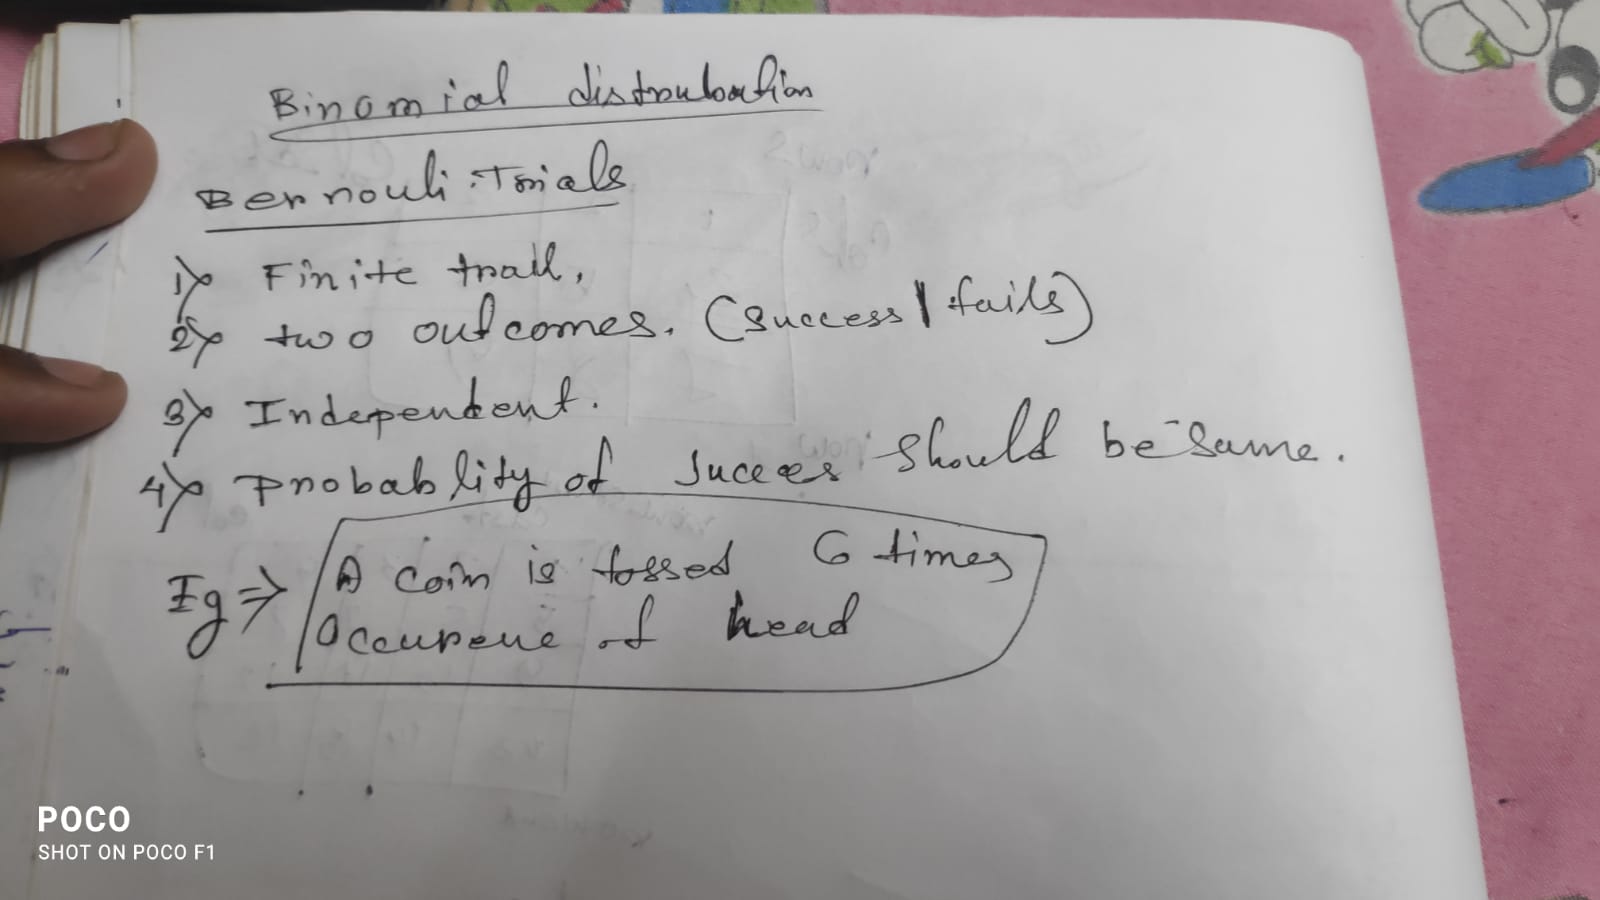 Binomial distrubation
Bernouli Trials
1) Finite trail,
2) two outcomes. (success | fails)
3) Independent.
4) Probablity of succes should be same.
Eg ⇒ A coin is tossed 6 times
Occurene of head
POCO
SHOT ON POCO F1